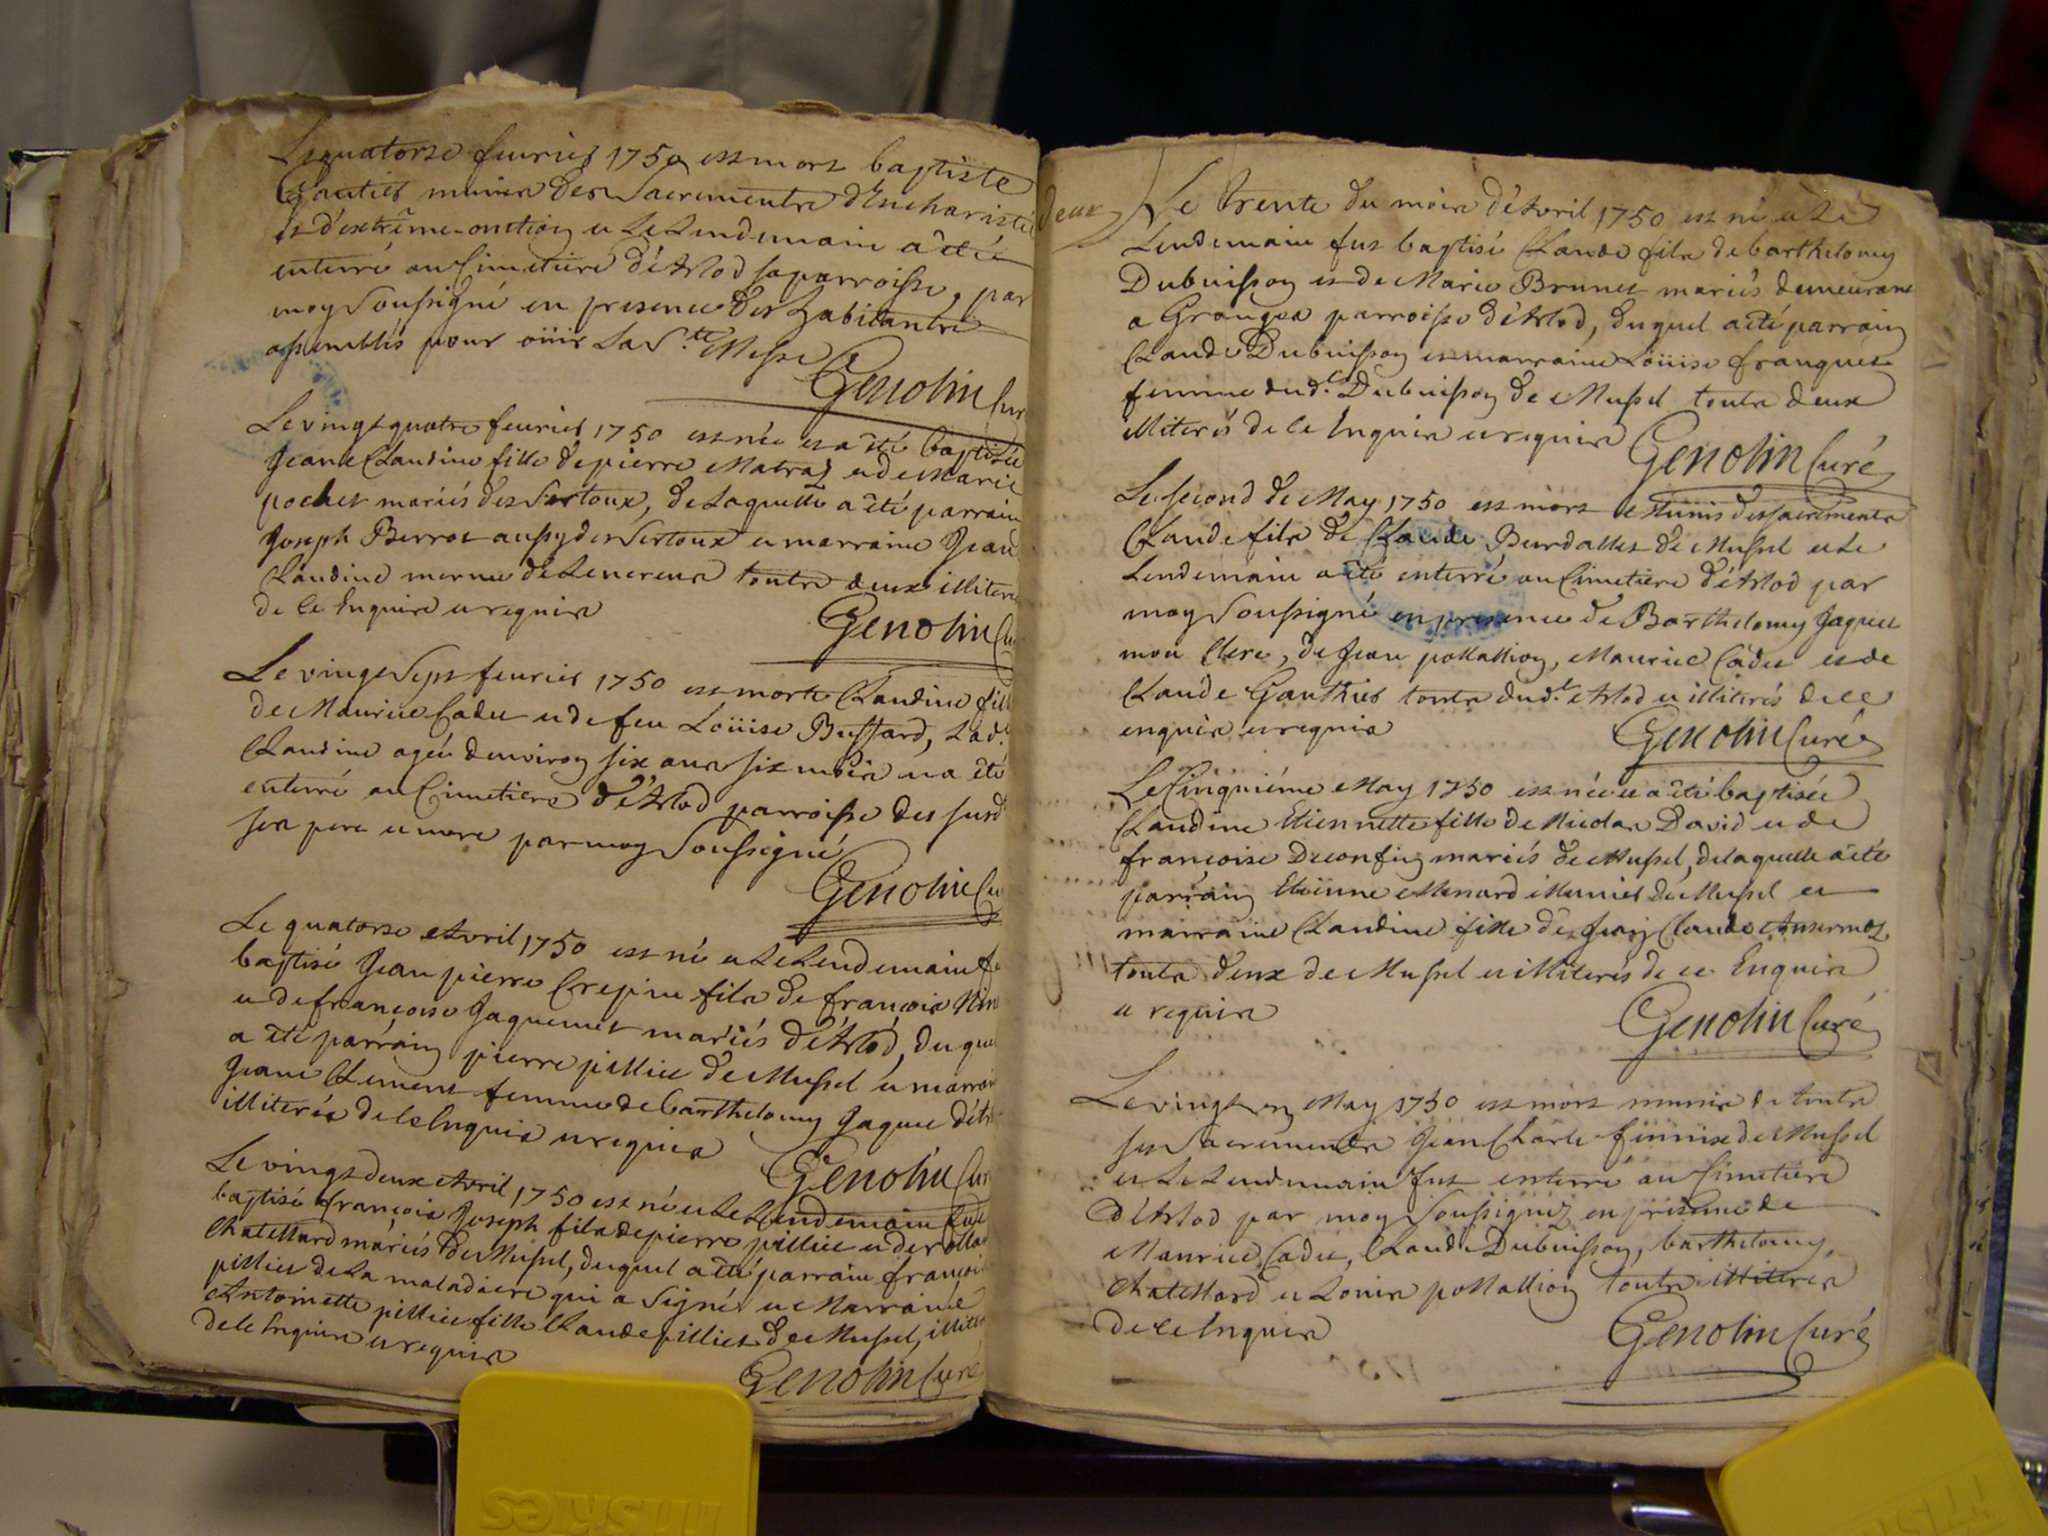 Le quatorze fevrier 1750 est mort baptiste
Gautier munis des Sacrements d'Eucharistie
et d'extrême-onction et Le Lendemain a été
enterré au Cimetiere d'Arlod sa parroisse, par
moy Soussigné en presence des habitants
assemblés pour oüir La S.te Messe
Genolin Cur
Le vingt quatre fevrier 1750 est née et a été baptisée
Jeanne Claudine fille de pierre Matraz et de Marie
pochet mariés des Sertoux, de Laquelle a été parrain
Joseph Berrot aussy des Sertoux et marraine Jean
Claudine mermet de Lencreux touts deux illiteré
de ce Enquis et requis
Genolin Cu
Le vingt Sept fevrier 1750 est morte Claudine fill
de Maurice Cadet et de feu Loüise Buffard, Lad.te
Claudine agée d'environ six ans six mois et a été
enterré au Cimetiere d'Arlod parroisse des susd
ses pere et mere par moy Soussigné
Genolin Cu
Le quatorze Avril 1750 est né et Le Lendemain fu
baptisé Jean pierre Crespin fils de françois
et de françoise Jaquemet mariés d'Arlod, du quel
a été parrain pierre pilliet de Mussel et marrai
Jeane Clement femme de barthelomy Jaquet d'Arl
illiterés de ce Enquis et requis
Genolin Cur
Le vingt deux Avril 1750 est né et Le Lendemain fut
baptisé françois Joseph fils de pierre pilliet et de
Chatellard mariés de Mussel, duquel a été parrain françoi
pilliet de La maladiere qui a Signé et Marraine
Antoinette pilliet fille Claude pilliet de Mussel, illite
de ce Enquis et requis
Genolin Curé
deux
Le trente du mois d'Avril 1750 est né et Le
Lendemain fut baptisé Claude fils de barthelomy
Dubuisson et de Marie Brunet mariés demeurant
a Granges parroisse d'Arlod, duquel a été parrain
Claude Dubuisson et marraine Loüise franquet
femme dud.t Dubuisson de Mussel touts deux
illiterés de ce Enquis et requis
Genolin Curé
Le second de May 1750 est mort et munis des sacrements
Claude fils de Claude Burdallet de Mussel et Le
Lendemain a été enterré au Cimetiere d'Arlod par
moy Soussigné en presence de Barthelomy Jaquet
mon Clerc, de Jean pollallion, Maurice Cadet et de
Claude Gauthier touts dud.t Arlod et illiterés de ce
enquis et requis
Genolin Curé
Le Cinquiéme May 1750 est née et a été baptisée
Claudine Etiennette fille de Nicolas David et de
françoise Deconfin mariés de Mussel, de laquelle a été
parrain Etienne Menard Munier de Mussel et
marraine Claudine fille de Jean Claude Ansermoz
touts deux de Mussel et illiterés de ce Enquis
et requis
Genolin Curé
Le vingt May 1750 est mort munis de touts
ses Sacrements Jean Charle de Mussel
et Le Lendemain fut enterré au Cimetiere
d'Arlod par moy Soussigné en presence de
Maurice Cadet, Claude Dubuisson, barthelomy
Chatellard et Louis pollallion touts illiterés
de ce Enquis
Genolin Curé